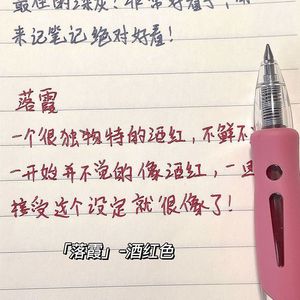 最狂的深灰!非常好看了,用
来记笔记绝对好看!
落霞
一个很独物特的酒红,不鲜不
一开始并不觉的像酒红,一旦
接受这个设定就很像了!
「落霞」-酒红色